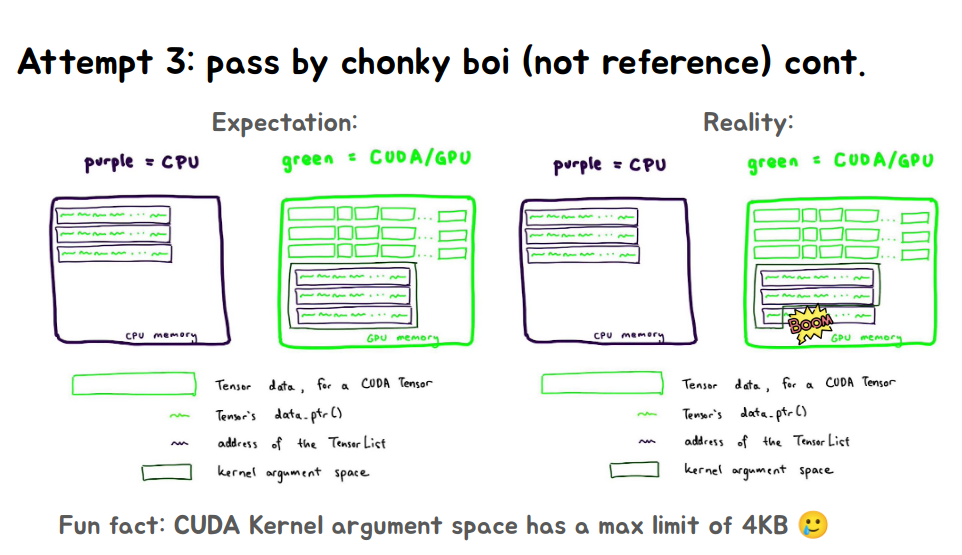 Attempt 3: pass by chonky boi (not reference) cont.
Expectation:
purple = CPU
green = CUDA/GPU
CPU memory
GPU memory
Tensor data, for a CUDA Tensor
Tensor's data_ptr()
address of the TensorList
kernel argument space
Reality:
purple = CPU
green = CUDA/GPU
CPU memory
BOOM
GPU memory
Tensor data, for a CUDA Tensor
Tensor's data_ptr()
address of the TensorList
kernel argument space
Fun fact: CUDA Kernel argument space has a max limit of 4KB 🥲